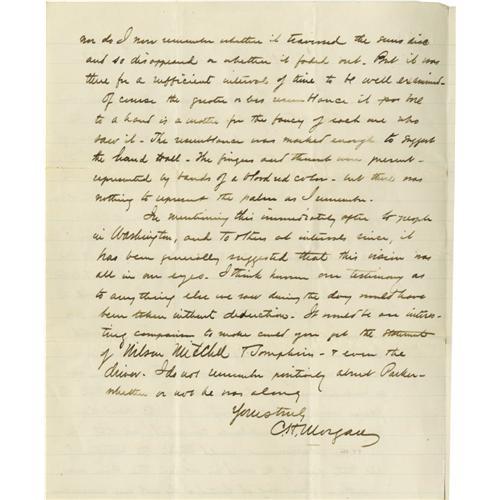 nor do I now remember whether it traversed the suns disc
and so disappeared or whether it faded out. But it was
there for a sufficient interval of time to be well examined.
Of course the greater or less resemblance it
to a hand is a matter for the fancy of each one who
saw it - The resemblance was marked enough to suggest
the hand at all - the fingers and thumb were present -
represented by bands of a blood red color - but there was
nothing to represent the palm as I remember.
In mentioning this immediately after to people
in Washington, and to others at intervals since, it
has been generally suggested that this vision was
all in our eyes. I think however our testimony as
to anything else we saw during the day would have
been taken without deduction - It would be an interes-
ting comparison to make could you get the statements
of Wilson Mitchell & Tompkins - & even the
driver. I do not remember positively about Parker -
whether or not he was along
Yours truly
C.H. Morgan